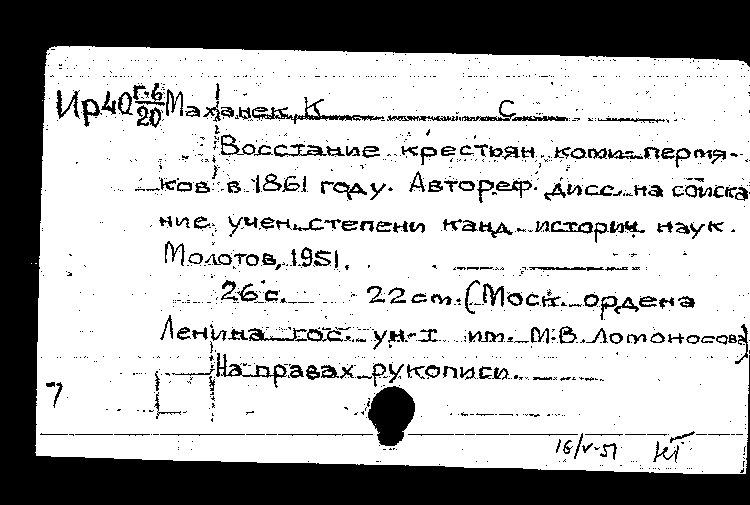 Ир40 г.6/20 Маханек, К С
Восстание крестьян коми-пермя-
ков в 1861 году. Автореф. дисс. на соиска
ние учен. степени канд. историч. наук.
Молотов, 1951.
26 с. 22 cm. (Моск. ордена
Ленина гос. ун-т им. М.В. Ломоносова)
На правах рукописи.
7
16/V-51